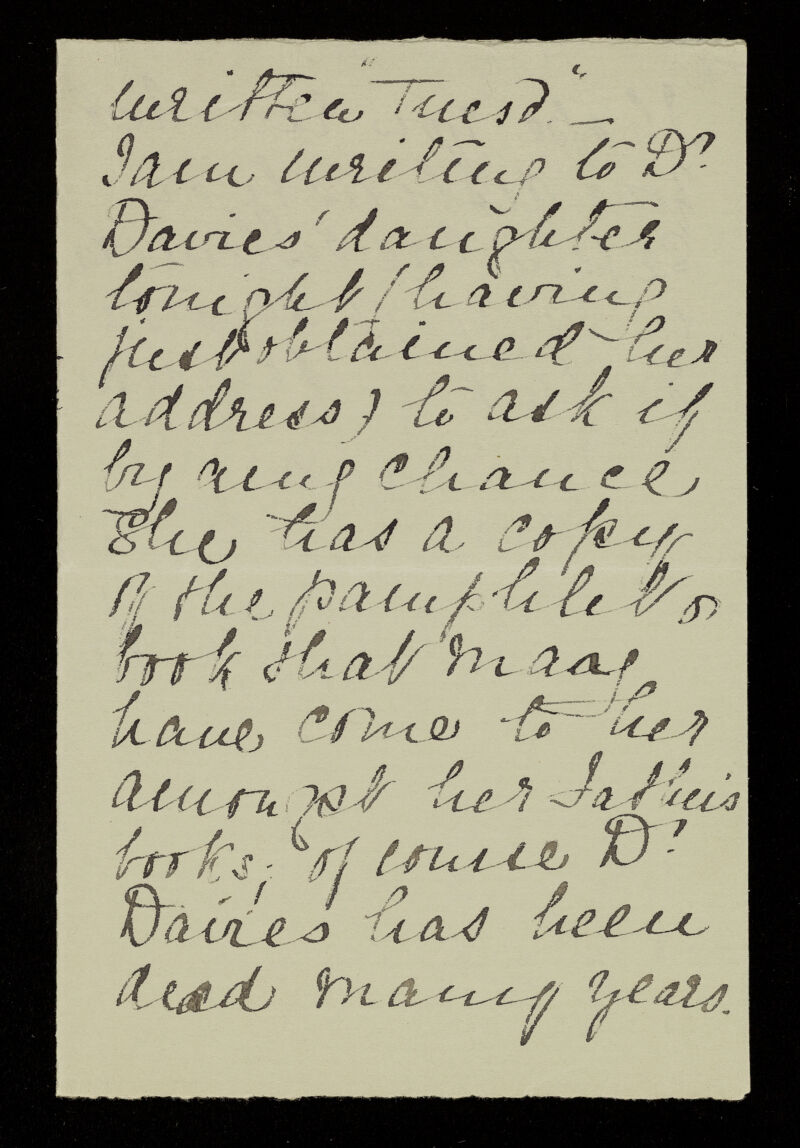 written "Tuesd." —
I am writing to Dr
Davies' daughter
tonight (having
just obtained her
address) to ask if
by any chance
she has a copy
of the pamphlet or
book that may
have come to her
amongst her Father's
books; of course Dr
Davies has been
dead many years.